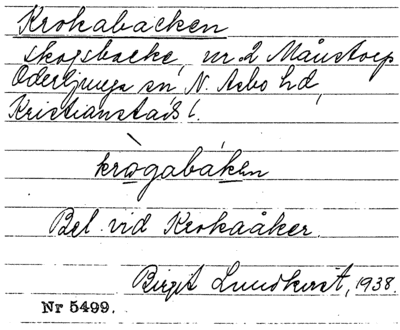 Krokabacken
skogsbacke, nr. 2 Månstorp
Oderljunga sn, N. Åsbo hd,
Kristianstads l.
krògabáken
Bel. vid Krokaåker.
Birgit Lundkvist, 1938.
Nr 5499.